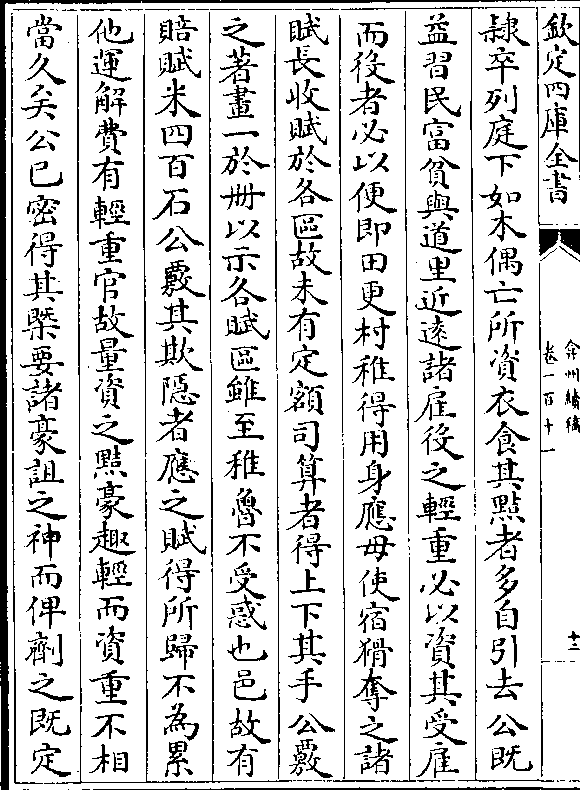 欽定四庫全書
弇州續稿
卷一百十一
十二
隷卒列庭下如木偶亡所資衣食其黠者多自引去公既
益習民富貧與道里近遠諸雇役之輕重必以資其受雇
而役者必以便即田更村稚得用身應毋使宿猾奪之諸
賦長收賦於各區故未有定額司算者得上下其手公覈
之著畫一於册以示各賦區雖至稚魯不受惑也邑故有
賠賦米四百石公覈其欺隠者應之賦得所歸不為累
他運解費有輕重官故量資之黠豪趣輕而資重不相
當久矣公已密得其槩要諸豪詛之神而俾劑之既定